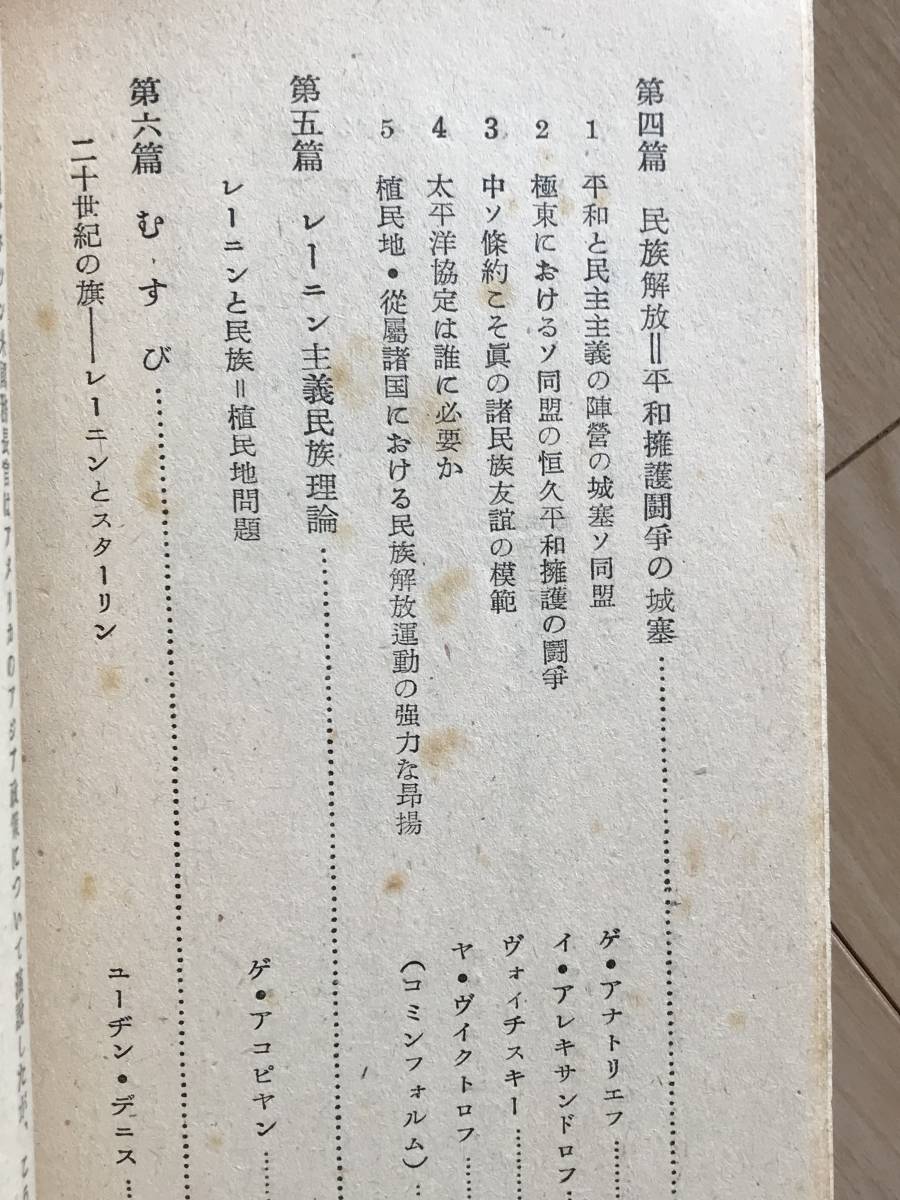 第四篇 民族解放＝平和擁護闘爭の城塞……………………
1 平和と民主主義の陣營の城塞ソ同盟 ゲ・アナトリエフ……
2 極東におけるソ同盟の恒久平和擁護の闘爭 イ・アレキサンドロフ…
3 中ソ條約こそ眞の諸民族友誼の模範 ヴォイチスキー……
4 太平洋協定は誰に必要か ヤ・ヴイクトロフ……
5 植民地・從屬諸国における民族解放運動の强力な昻揚 (コミンフォルム)…
第五篇 レーニン主義民族理論……………………
レーニンと民族＝植民地問題 ゲ・アコピヤン……
第六篇 むすび……………………
二十世紀の旗――レーニンとスターリン ユーヂン・デニス…
はアメリカのアジア政策について演説したが、